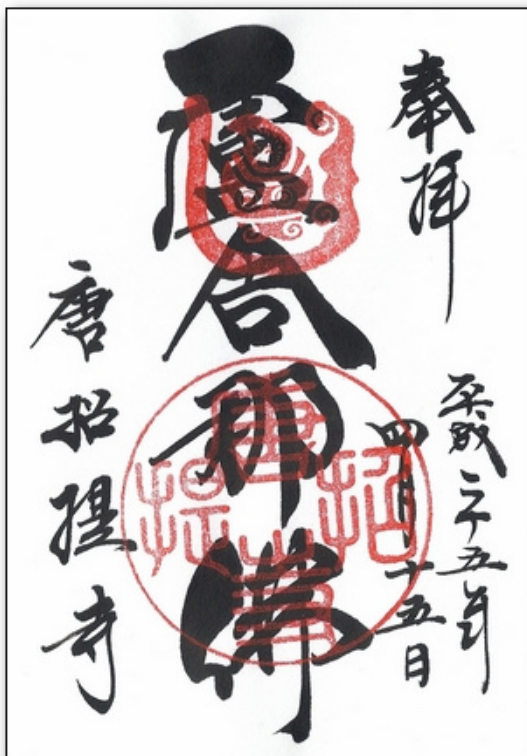 奉拝
平成二十五年
四月十五日
盧舎那佛
唐招提寺
唐招提寺